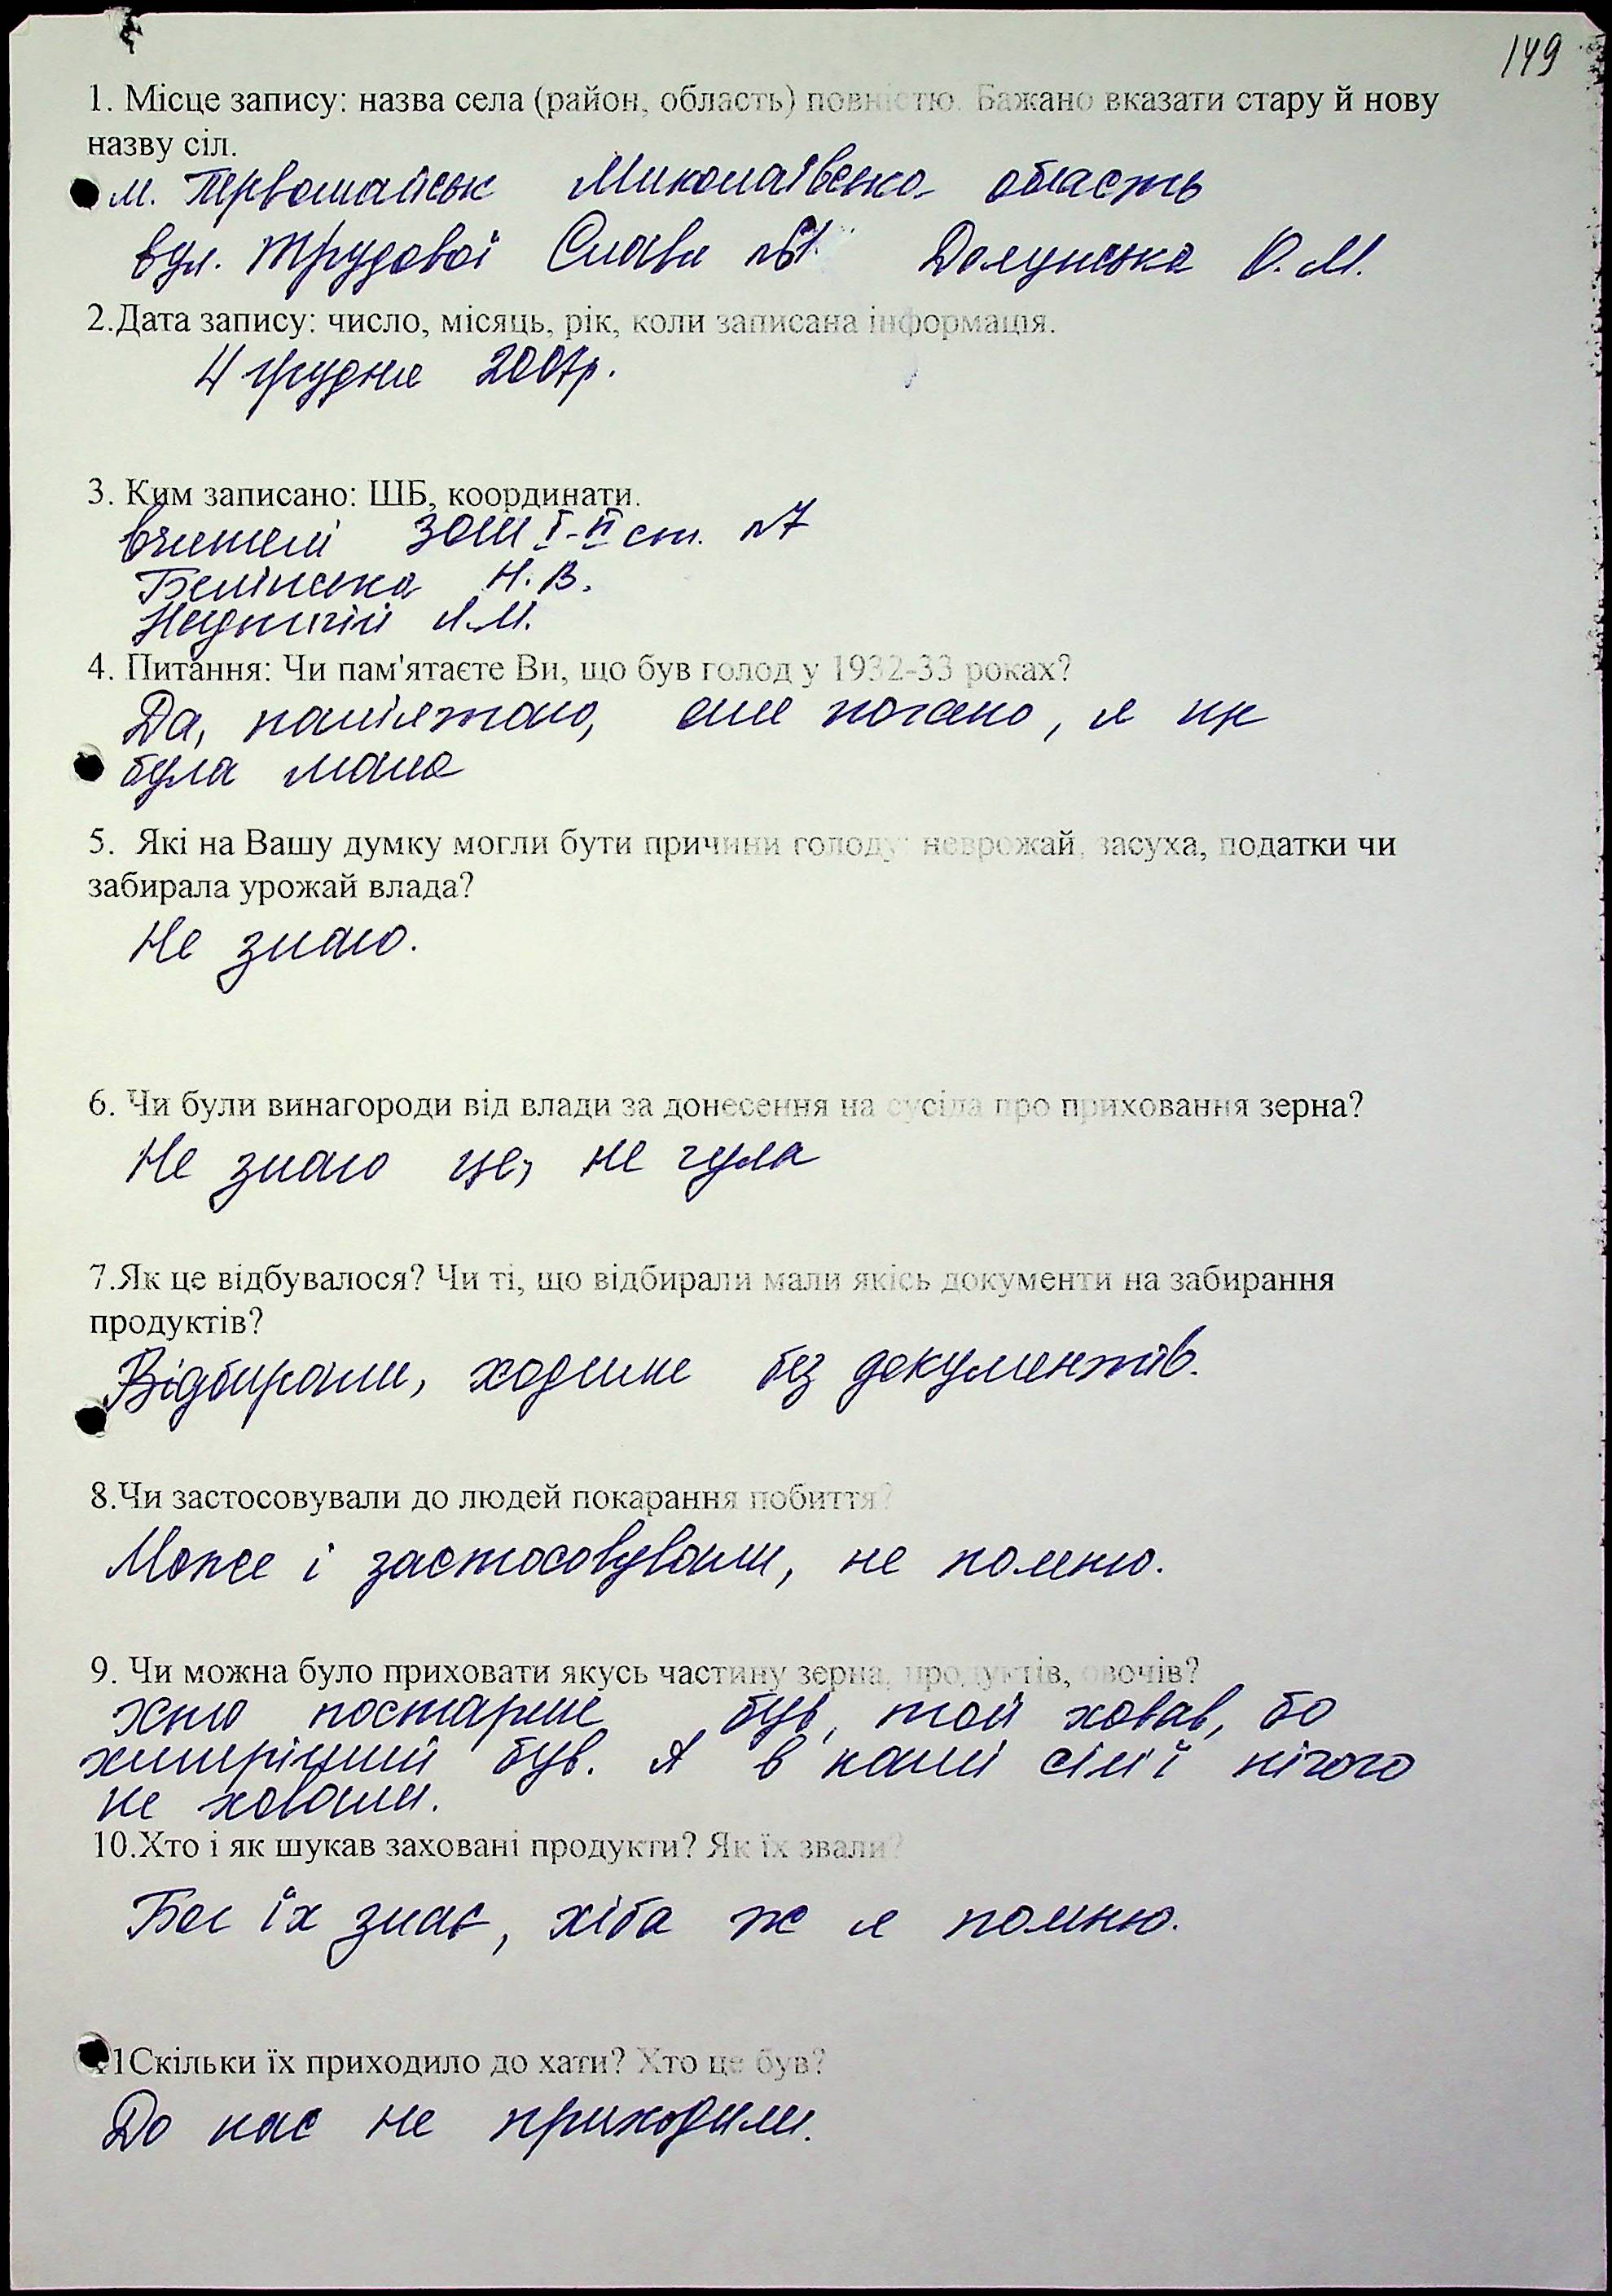 149
1. Місце запису: назва села (район, область) повністю. Бажано вказати стару й нову
назву сіл.
м. Первомайськ Миколаївська область
вул. Трудової Слави №1 Долунська О.М.
2.Дата запису: число, місяць, рік, коли записана інформація.
4 грудня 2007р.
3. Ким записано: ПІБ, координати.
вчителі ЗОШ I-II ст. №7
Белінська Н.В.
Л.М.
4. Питання: Чи пам'ятаєте Ви, що був голод у 1932-33 роках?
Да, пам'ятаю, але погано, я ще
була мала
5. Які на Вашу думку могли бути причини голоду: неврожай, засуха, податки чи
забирала урожай влада?
Не знаю.
6. Чи були винагороди від влади за донесення на сусіда про приховання зерна?
Не знаю це, не чула
7.Як це відбувалося? Чи ті, що відбирали мали якісь документи на забирання
продуктів?
Відбирали, ходили без документів.
8.Чи застосовували до людей покарання побиття?
Може і застосовували, не помню.
9. Чи можна було приховати якусь частину зерна, продуктів, овочів?
Хто постарше був, той ховав, бо
хитріший був. А в нашій сім'ї нічого
не ховали.
10.Хто і як шукав заховані продукти? Як їх звали?
Бог їх знає, хіба ж я помню.
11Скільки їх приходило до хати? Хто це був?
До нас не приходили.